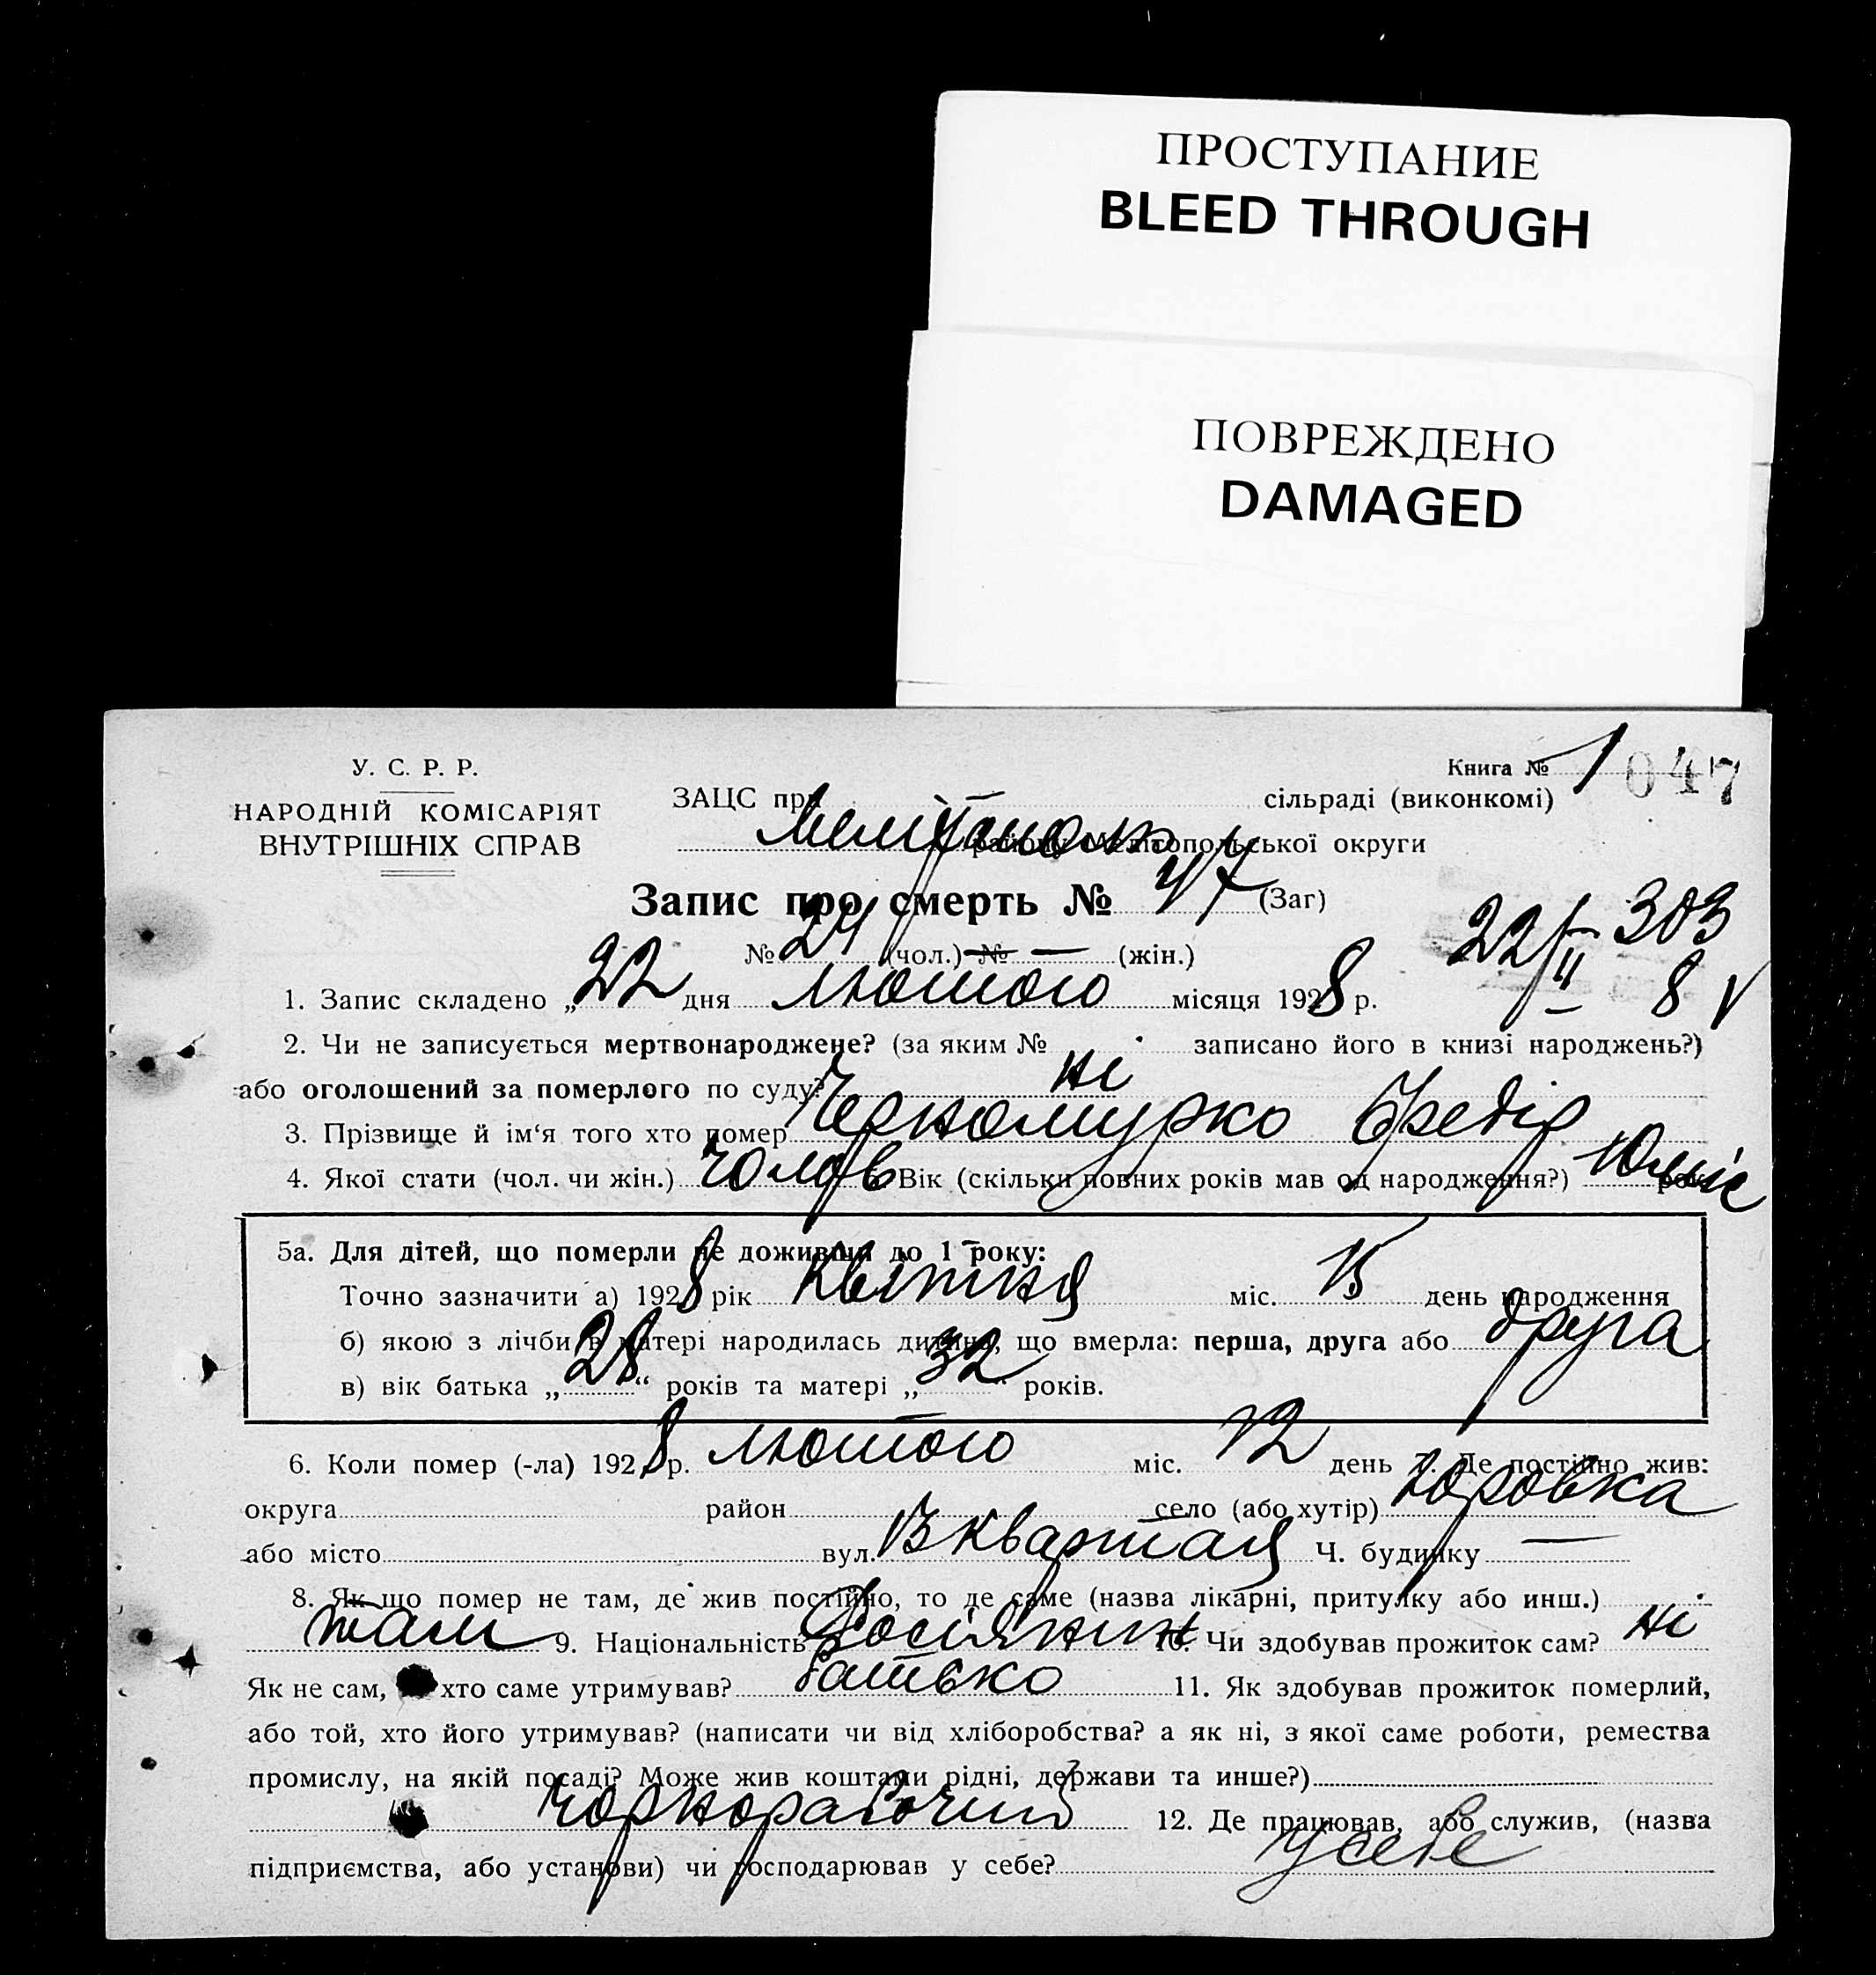 ПРОСТУПАНИЕ
BLEED THROUGH
ПОВРЕЖДЕНО
DAMAGED
У. С. Р. Р.
НАРОДНІЙ КОМІСАРІЯТ
ВНУТРІШНІХ СПРАВ
Книга № 1 047
ЗАЦС при сільраді (виконкомі)
району Мелітопольської округи
Запис про смерть № 47 (Заг)
№ 24 (чол.) № — (жін.)
22/II 303
8 V
1. Запис складено „22 дня лютого місяця 1928 р.
2. Чи не записується мертвонароджене? (за яким № записано його в книзі народжень?)
або оголошений за померлого по суду? ні
3. Прізвище й ім‘я того хто помер Черномурко Федір
4. Якої стати (чол. чи жін.) чолов 5. Вік (скільки повних років мав од народження?) 10 міс рок
5а. Для дітей, що померли не доживши до 1 року:
Точно зазначити а) 1928 рік Квітня міс. 15 день народження
б) якою з лічби в матері народилась дитина, що вмерла: перша, друга або друга
в) вік батька „28“ років та матері „32“ років.
6. Коли помер (-ла) 1928 р. лютого міс. 12 день 7. Де постійно жив:
округа район село (або хутір) Юровка
або місто вул. 13 квартал Ч. будинку —
8. Як що помер не там, де жив постійно, то де саме (назва лікарні, притулку або инш.)
там 9. Національність Росіянин 10. Чи здобував прожиток сам? ні
Як не сам, хто саме утримував? батько 11. Як здобував прожиток померлий,
або той, хто його утримував? (написати чи від хліборобства? а як ні, з якої саме роботи, ремества
промислу, на якій посаді? Може жив коштами рідні, держави та инше?)
чорнорабочий 12. Де працював, або служив, (назва
підприємства, або установи) чи господарював у себе? У себе